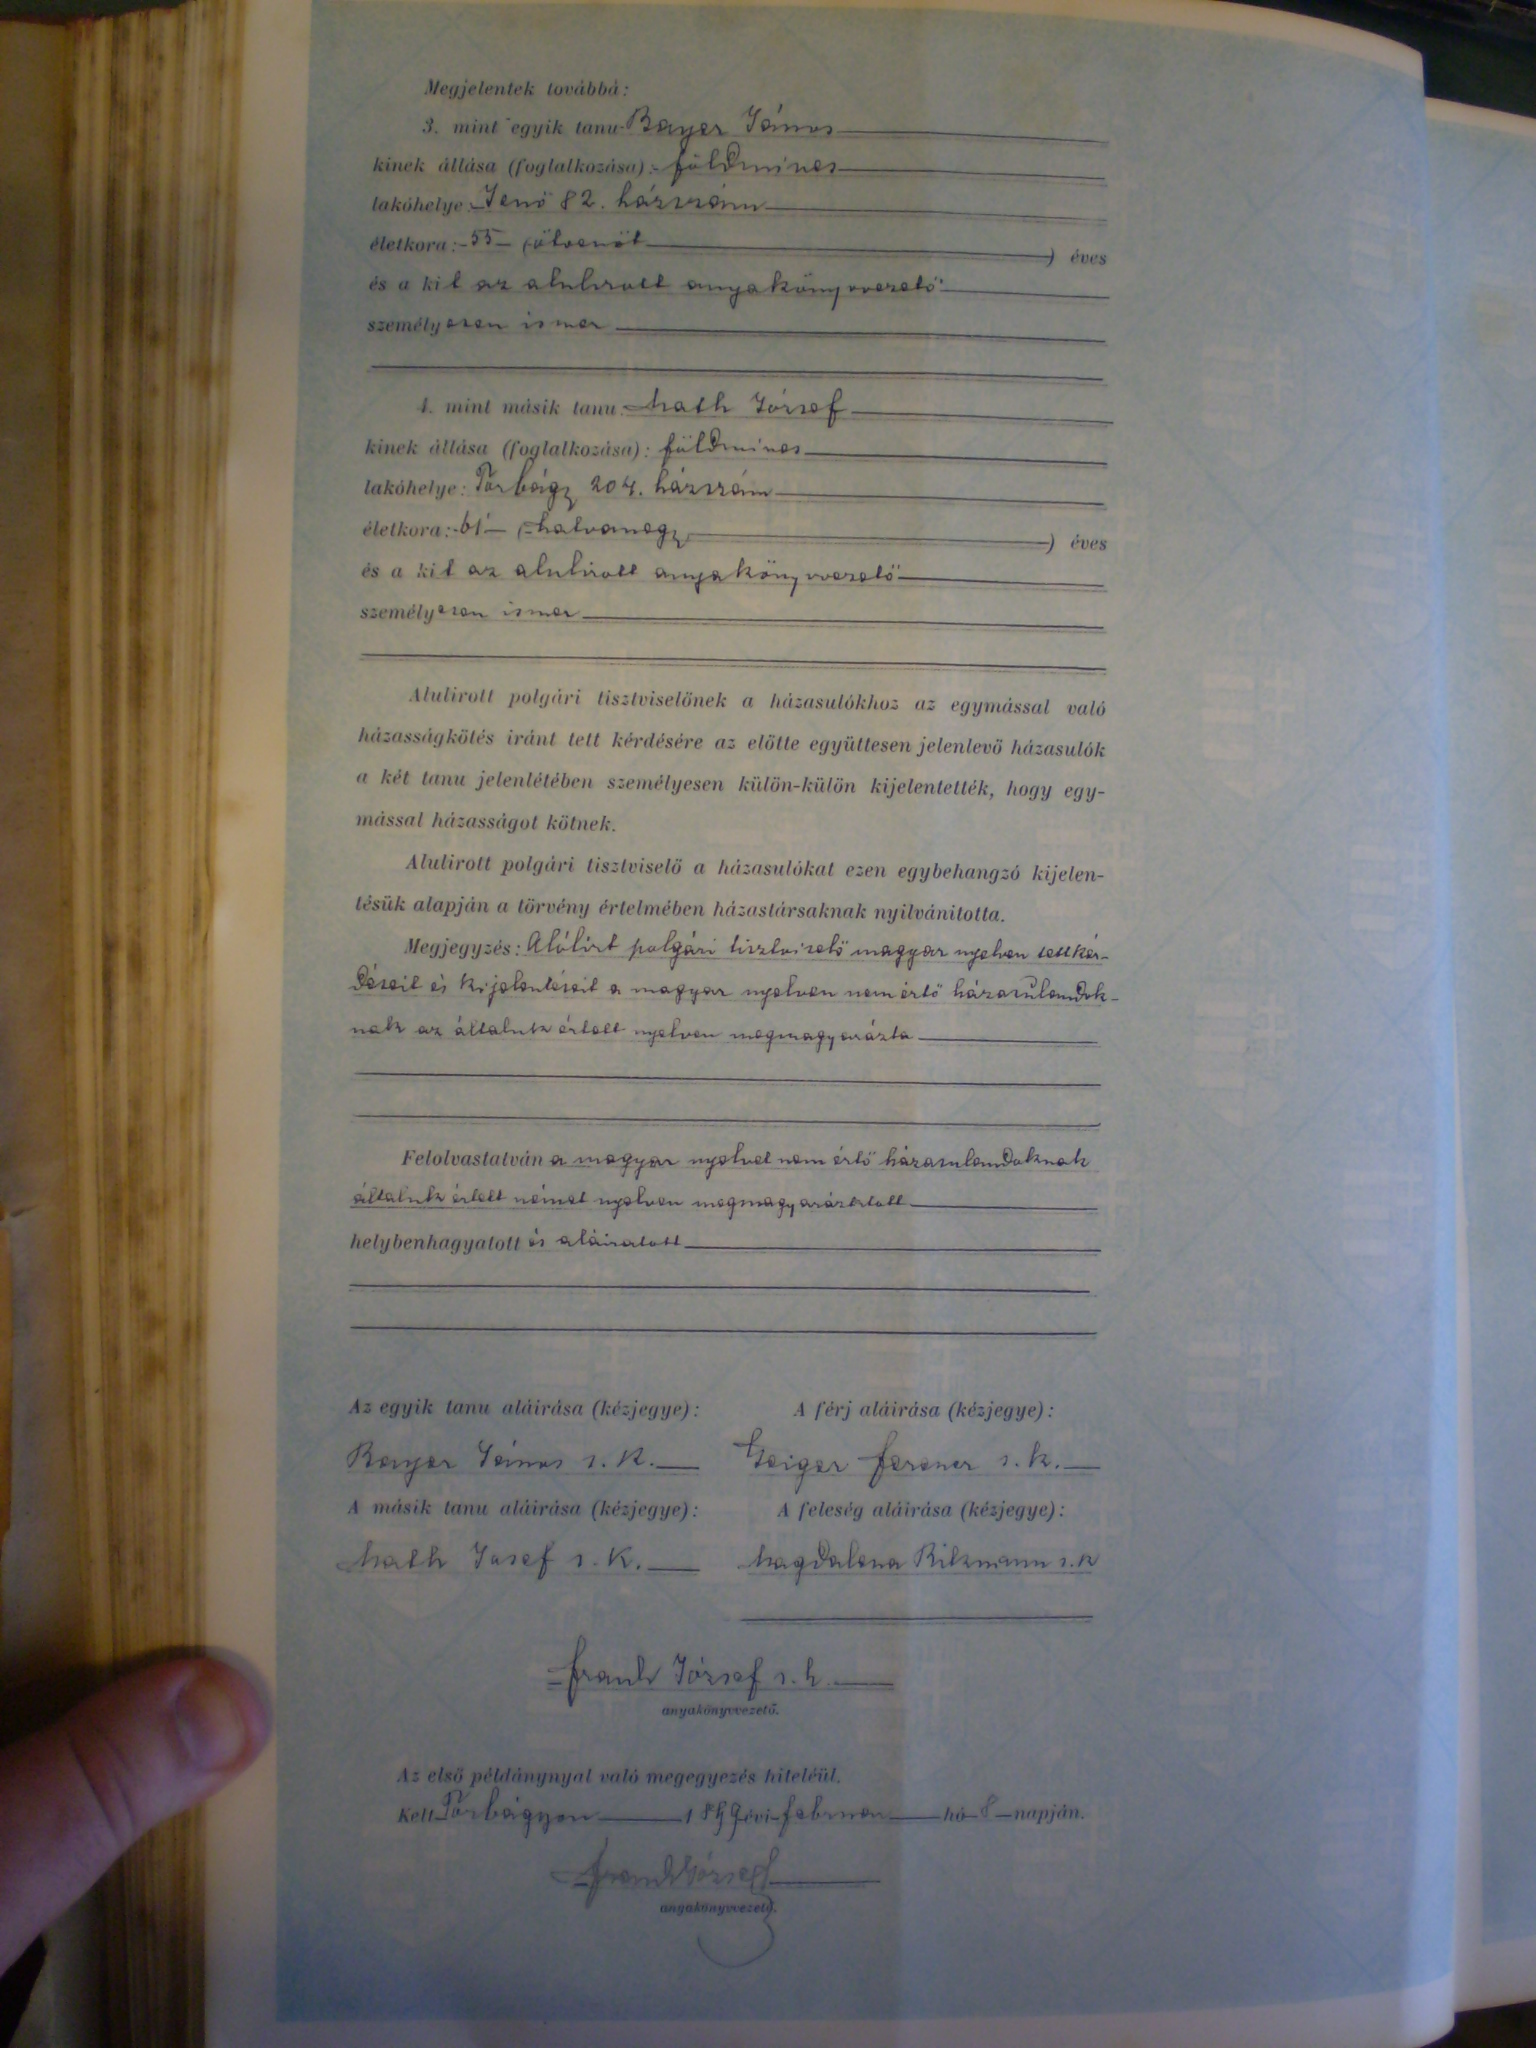 Megjelentek továbbá:
3. mint egyik tanu Bayer János
kinek állása (foglalkozása): földmíves
lakóhelye: Jenő 82. házszám
életkora: 55 (ötvenöt) éves
és a kit az alulírott anyakönyvvezető
személyesen ismer
4. mint másik tanu: Math József
kinek állása (foglalkozása): földmíves
lakóhelye: Torbágy 204. házszám
életkora: 61 (hatvanegy) éves
és a kit az alulirott anyakönyvvezető
személyesen ismer
Alulirott polgári tisztviselőnek a házasulókhoz az egymással való
házasságkötés iránt tett kérdésére az előtte együttesen jelenlevő házasulók
a két tanu jelenlétében személyesen külön-külön kijelentették, hogy egy-
mással házasságot kötnek.
Alulirott polgári tisztviselő a házasulókat ezen egybehangzó kijelen-
tésük alapján a törvény értelmében házastársaknak nyilvánitotta.
Megjegyzés: Alólírt polgári tisztviselő magyar nyelven tett kér-
déseit és kijelentéseit a magyar nyelven nem értő házasulandók-
nak az általuk értett nyelven megmagyarázta
Felolvastatván a magyar nyelvet nem értő házasulandóknak
általuk értett német nyelven megmagyaráztatott
helybenhagyatott és aláiratott
Az egyik tanu aláirása (kézjegye): A férj aláirása (kézjegye):
Bayer János s. k. Geiger Ferencz s. k.
A másik tanu aláirása (kézjegye): A feleség aláirása (kézjegye):
Math Josef s. k. Magdalena Ritzmann s. k
Frank József s. k.
anyakönyvvezető.
Az első példánynyal való megegyezés hiteléül.
Kelt Torbágyon 1899 évi februar hó 8 napján.
Frank József
anyakönyvvezető.